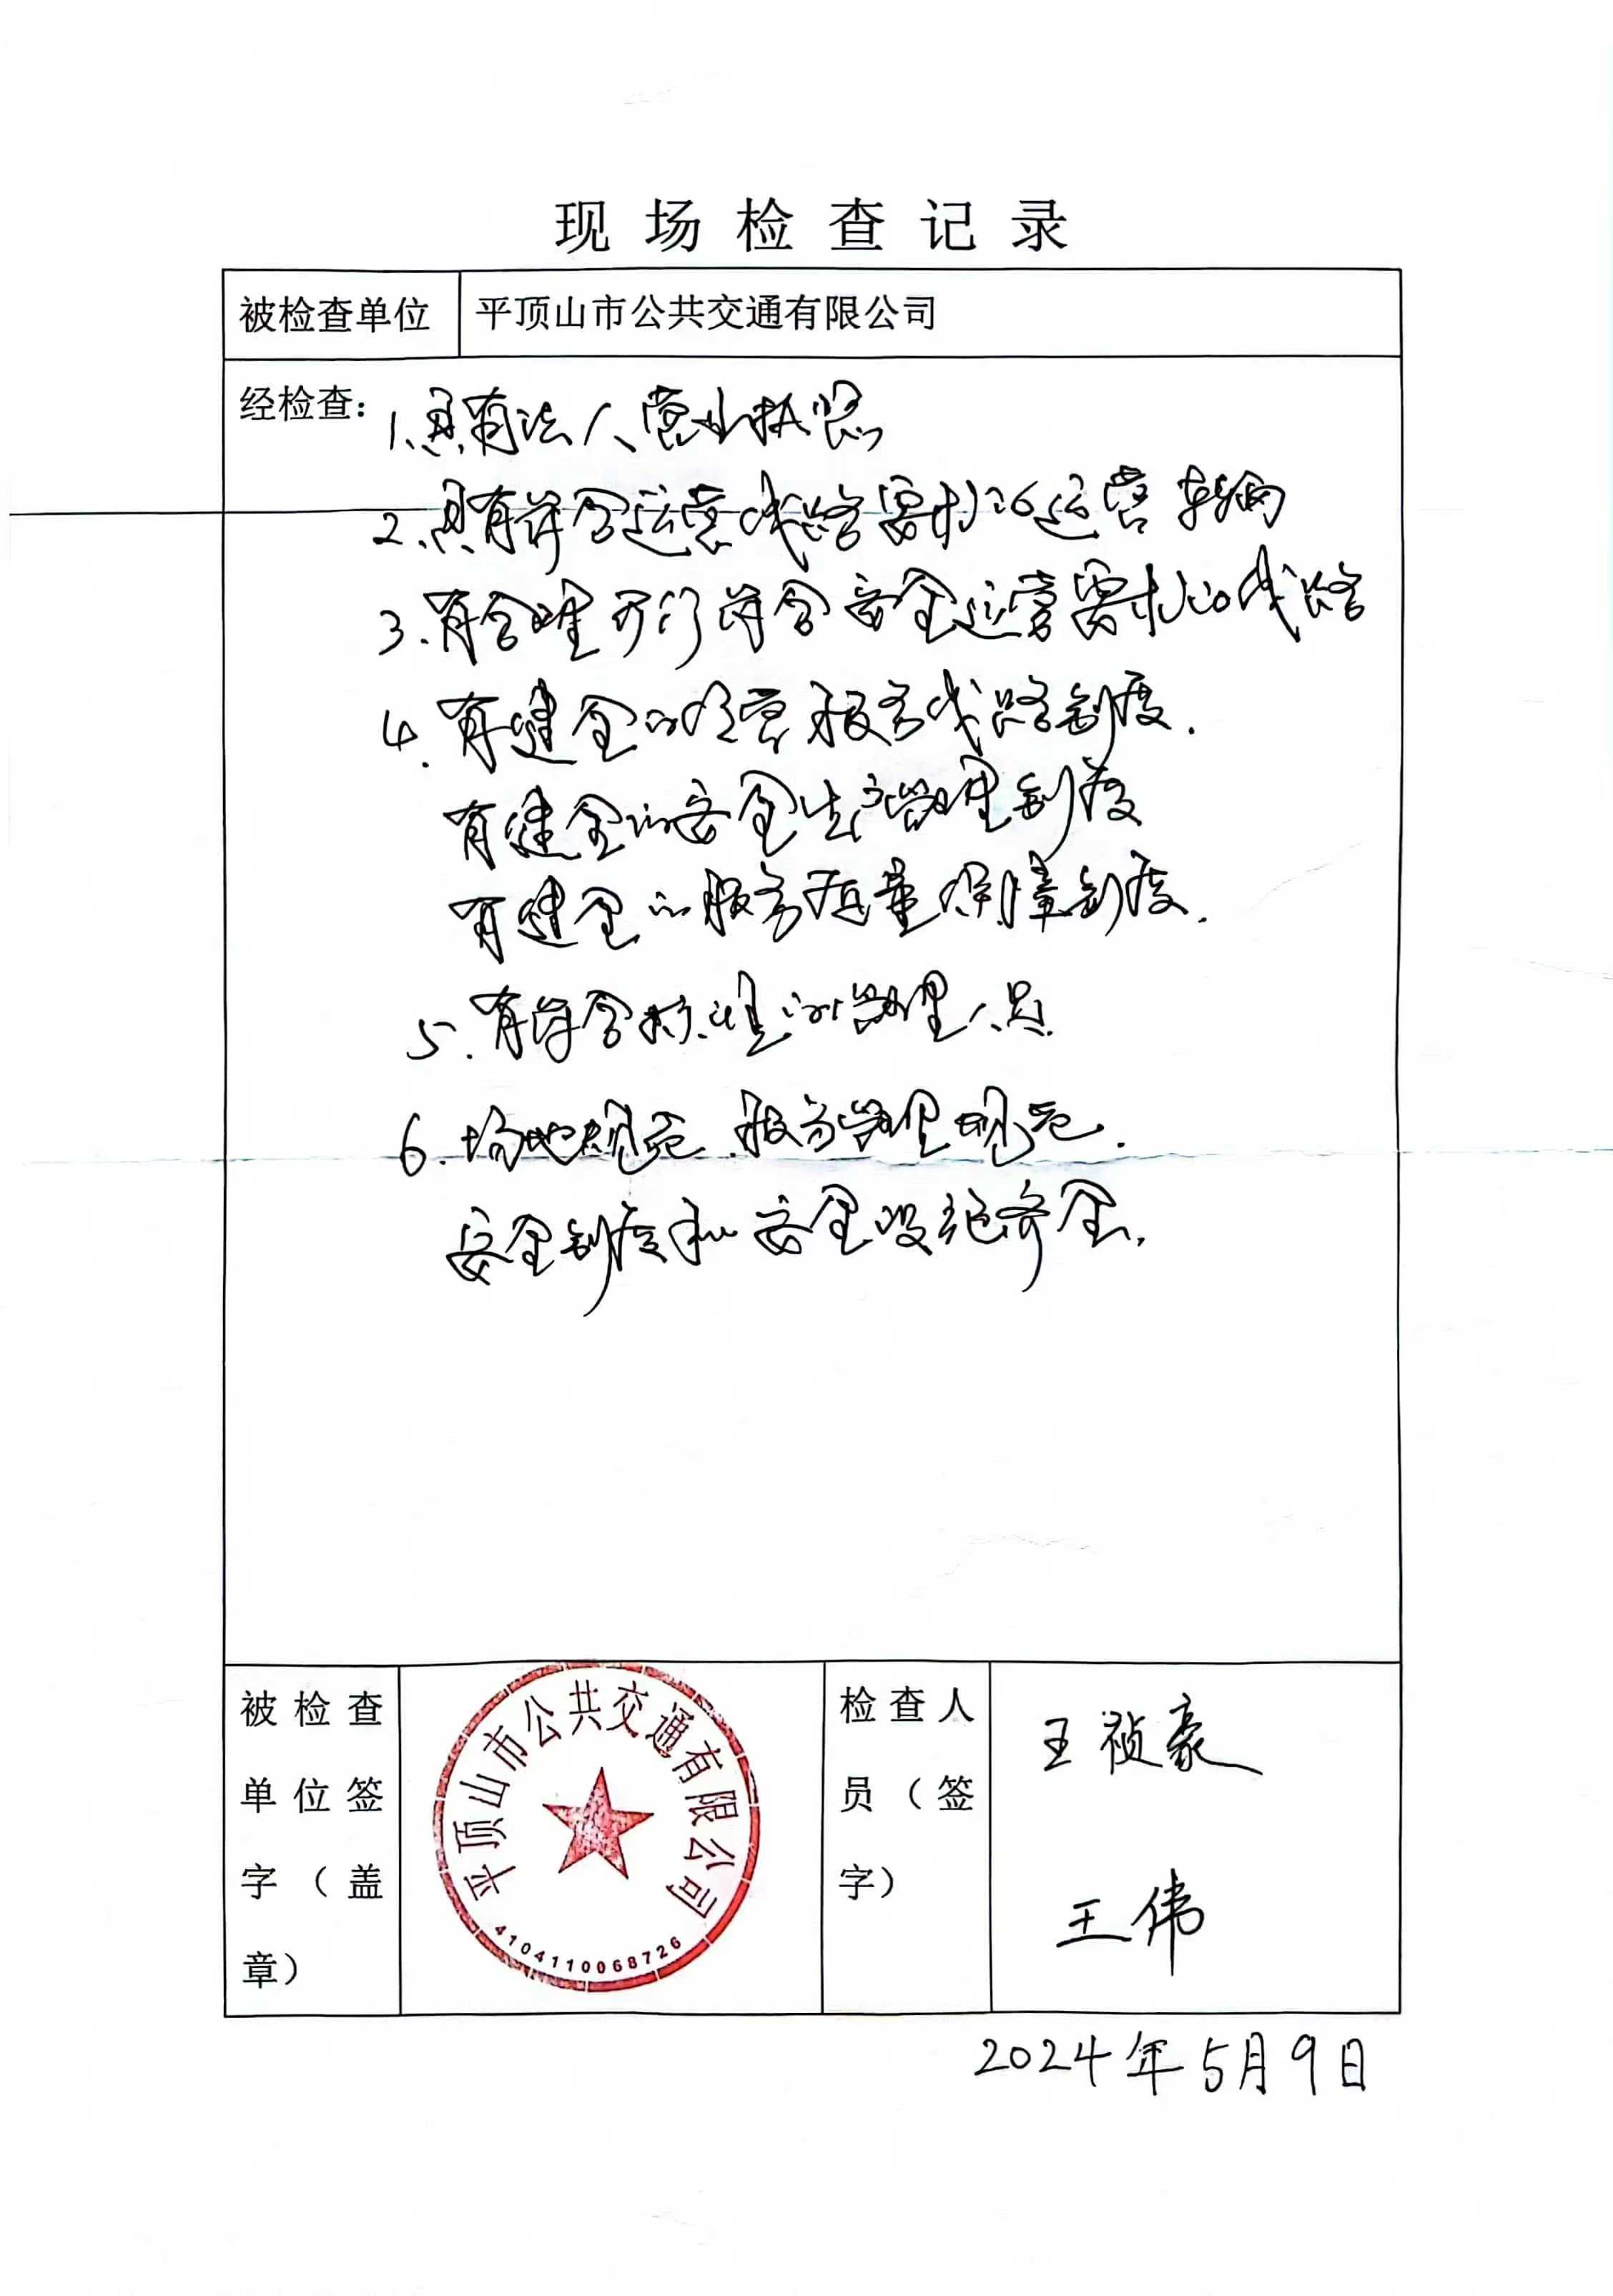 现场检查记录
被检查单位 平顶山市公共交通有限公司
经检查:
1、具有法人营业执照
2、具有符合运营线路要求的运营车辆
3.有合理可行符合安全运营要求的线路
4.有健全的经营服务线路制度.
有健全的安全生产管理制度
有健全的服务质量保障制度.
5.有符合标准的管理人员
6.场地规范.服务管理规范.
安全制度和安全设施齐全.
被检查单位签字(盖章)
平顶山市公共交通有限公司
4104110068726
检查人员(签字)
王祯豪
王伟
2024年5月9日